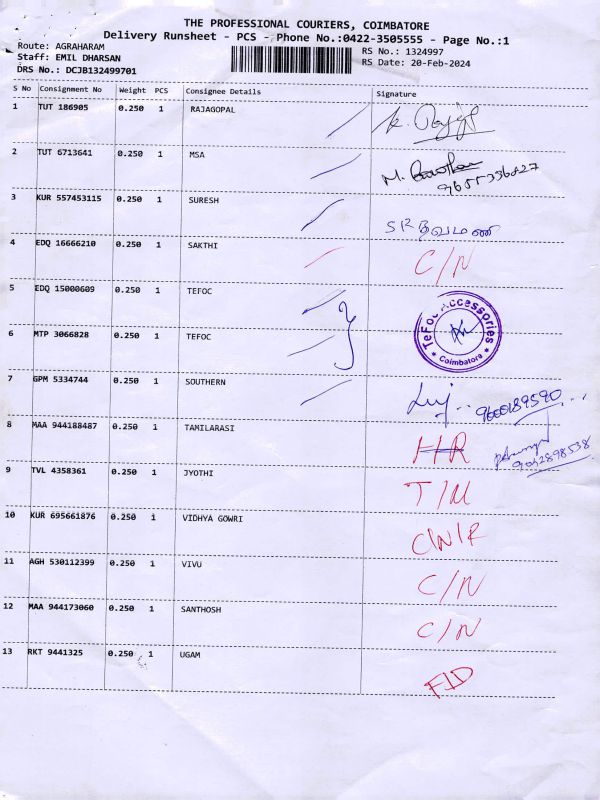 THE PROFESSIONAL COURIERS, COIMBATORE
Delivery Runsheet - PCS - Phone No.:0422-3505555 - Page No.:1
Route: AGRAHARAM
Staff: EMIL DHARSAN
DRS No.: DCJB132499701
RS No.: 1324997
RS Date: 20-Feb-2024
S No Consignment No Weight PCS Consignee Details Signature
1 TUT 186905 0.250 1 RAJAGOPAL
2 TUT 6713641 0.250 1 MSA M.
3 KUR 557453115 0.250 1 SURESH
4 EDQ 16666210 0.250 1 SAKTHI C/N
5 EDQ 15000609 0.250 1 TEFOC
TeFoc Accessories
* Coimbatore *
6 MTP 3066828 0.250 1 TEFOC
7 GPM 5334744 0.250 1 SOUTHERN 9600189590
8 MAA 944188487 0.250 1 TAMILARASI
9042898538
9 TVL 4358361 0.250 1 JYOTHI T/M
10 KUR 695661876 0.250 1 VIDHYA GOWRI C/N/R
11 AGH 530112399 0.250 1 VIVU C/N
12 MAA 944173060 0.250 1 SANTHOSH C/N
13 RKT 9441325 0.250 1 UGAM